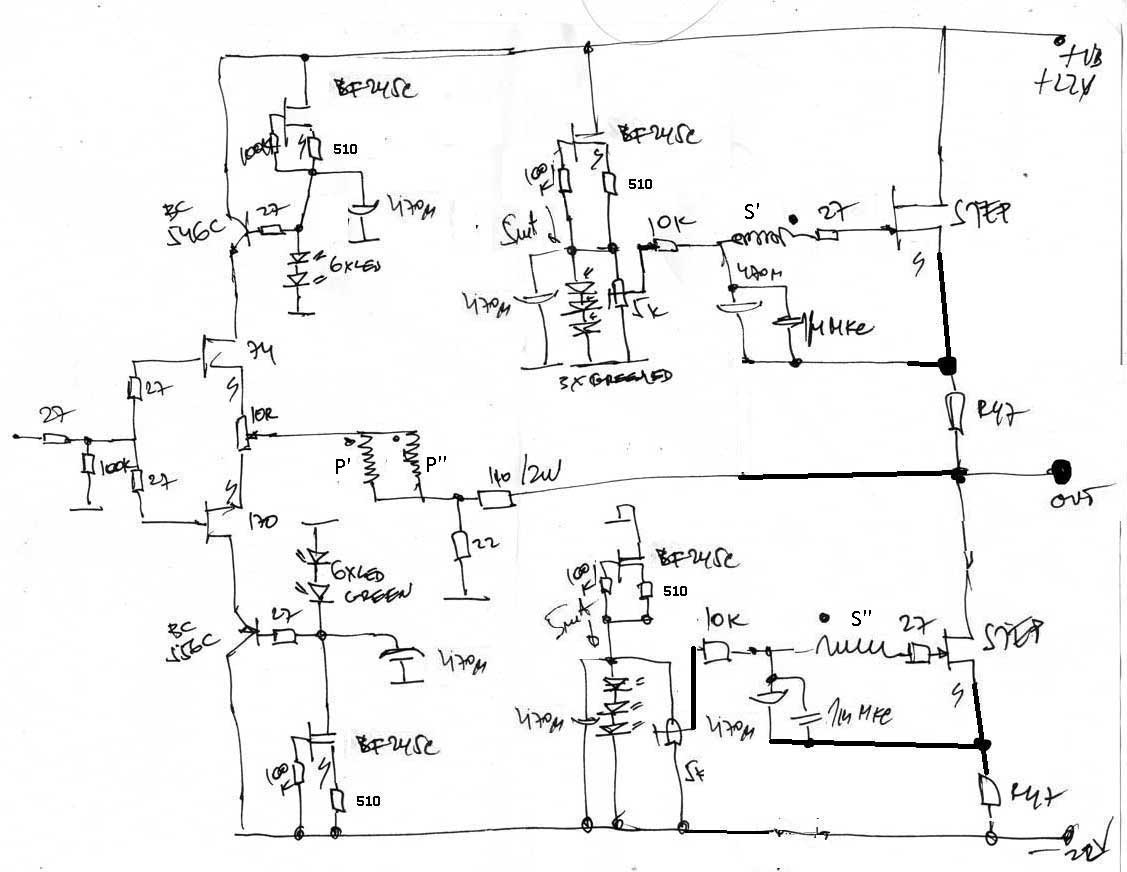 +UB
+22V
BF245C
100K
510
S
470M
BC
546C
27
6XLED
BF245C
100
K
510
S
5mA
470M
5K
3X GREEN LED
10K
S'
27
470M
1M MKC
S
R47
74
27
S
10R
27
100K
27
S
170
P'
P''
140/2W
22
OUT
6XLED
GREEN
BC
556C
27
470M
BF245C
100
K
S
510
BF245C
100
K
510
5mA
470M
5K
10K
S''
27
470M
1M MKC
S
R47
-22V